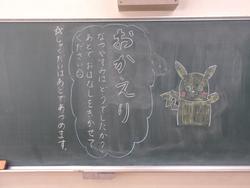 おかえり
なつやすみはどうでしたか?
あとでおはなしをきかせて
ください☺
☆しゅくだいはあとであつめます。